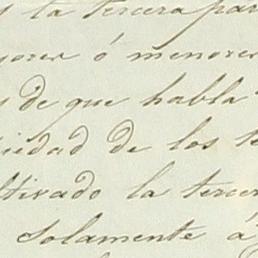 s la tercera par
yores ó menores
s de que habla
iedad de los te
ltivado la tercer
solamente á